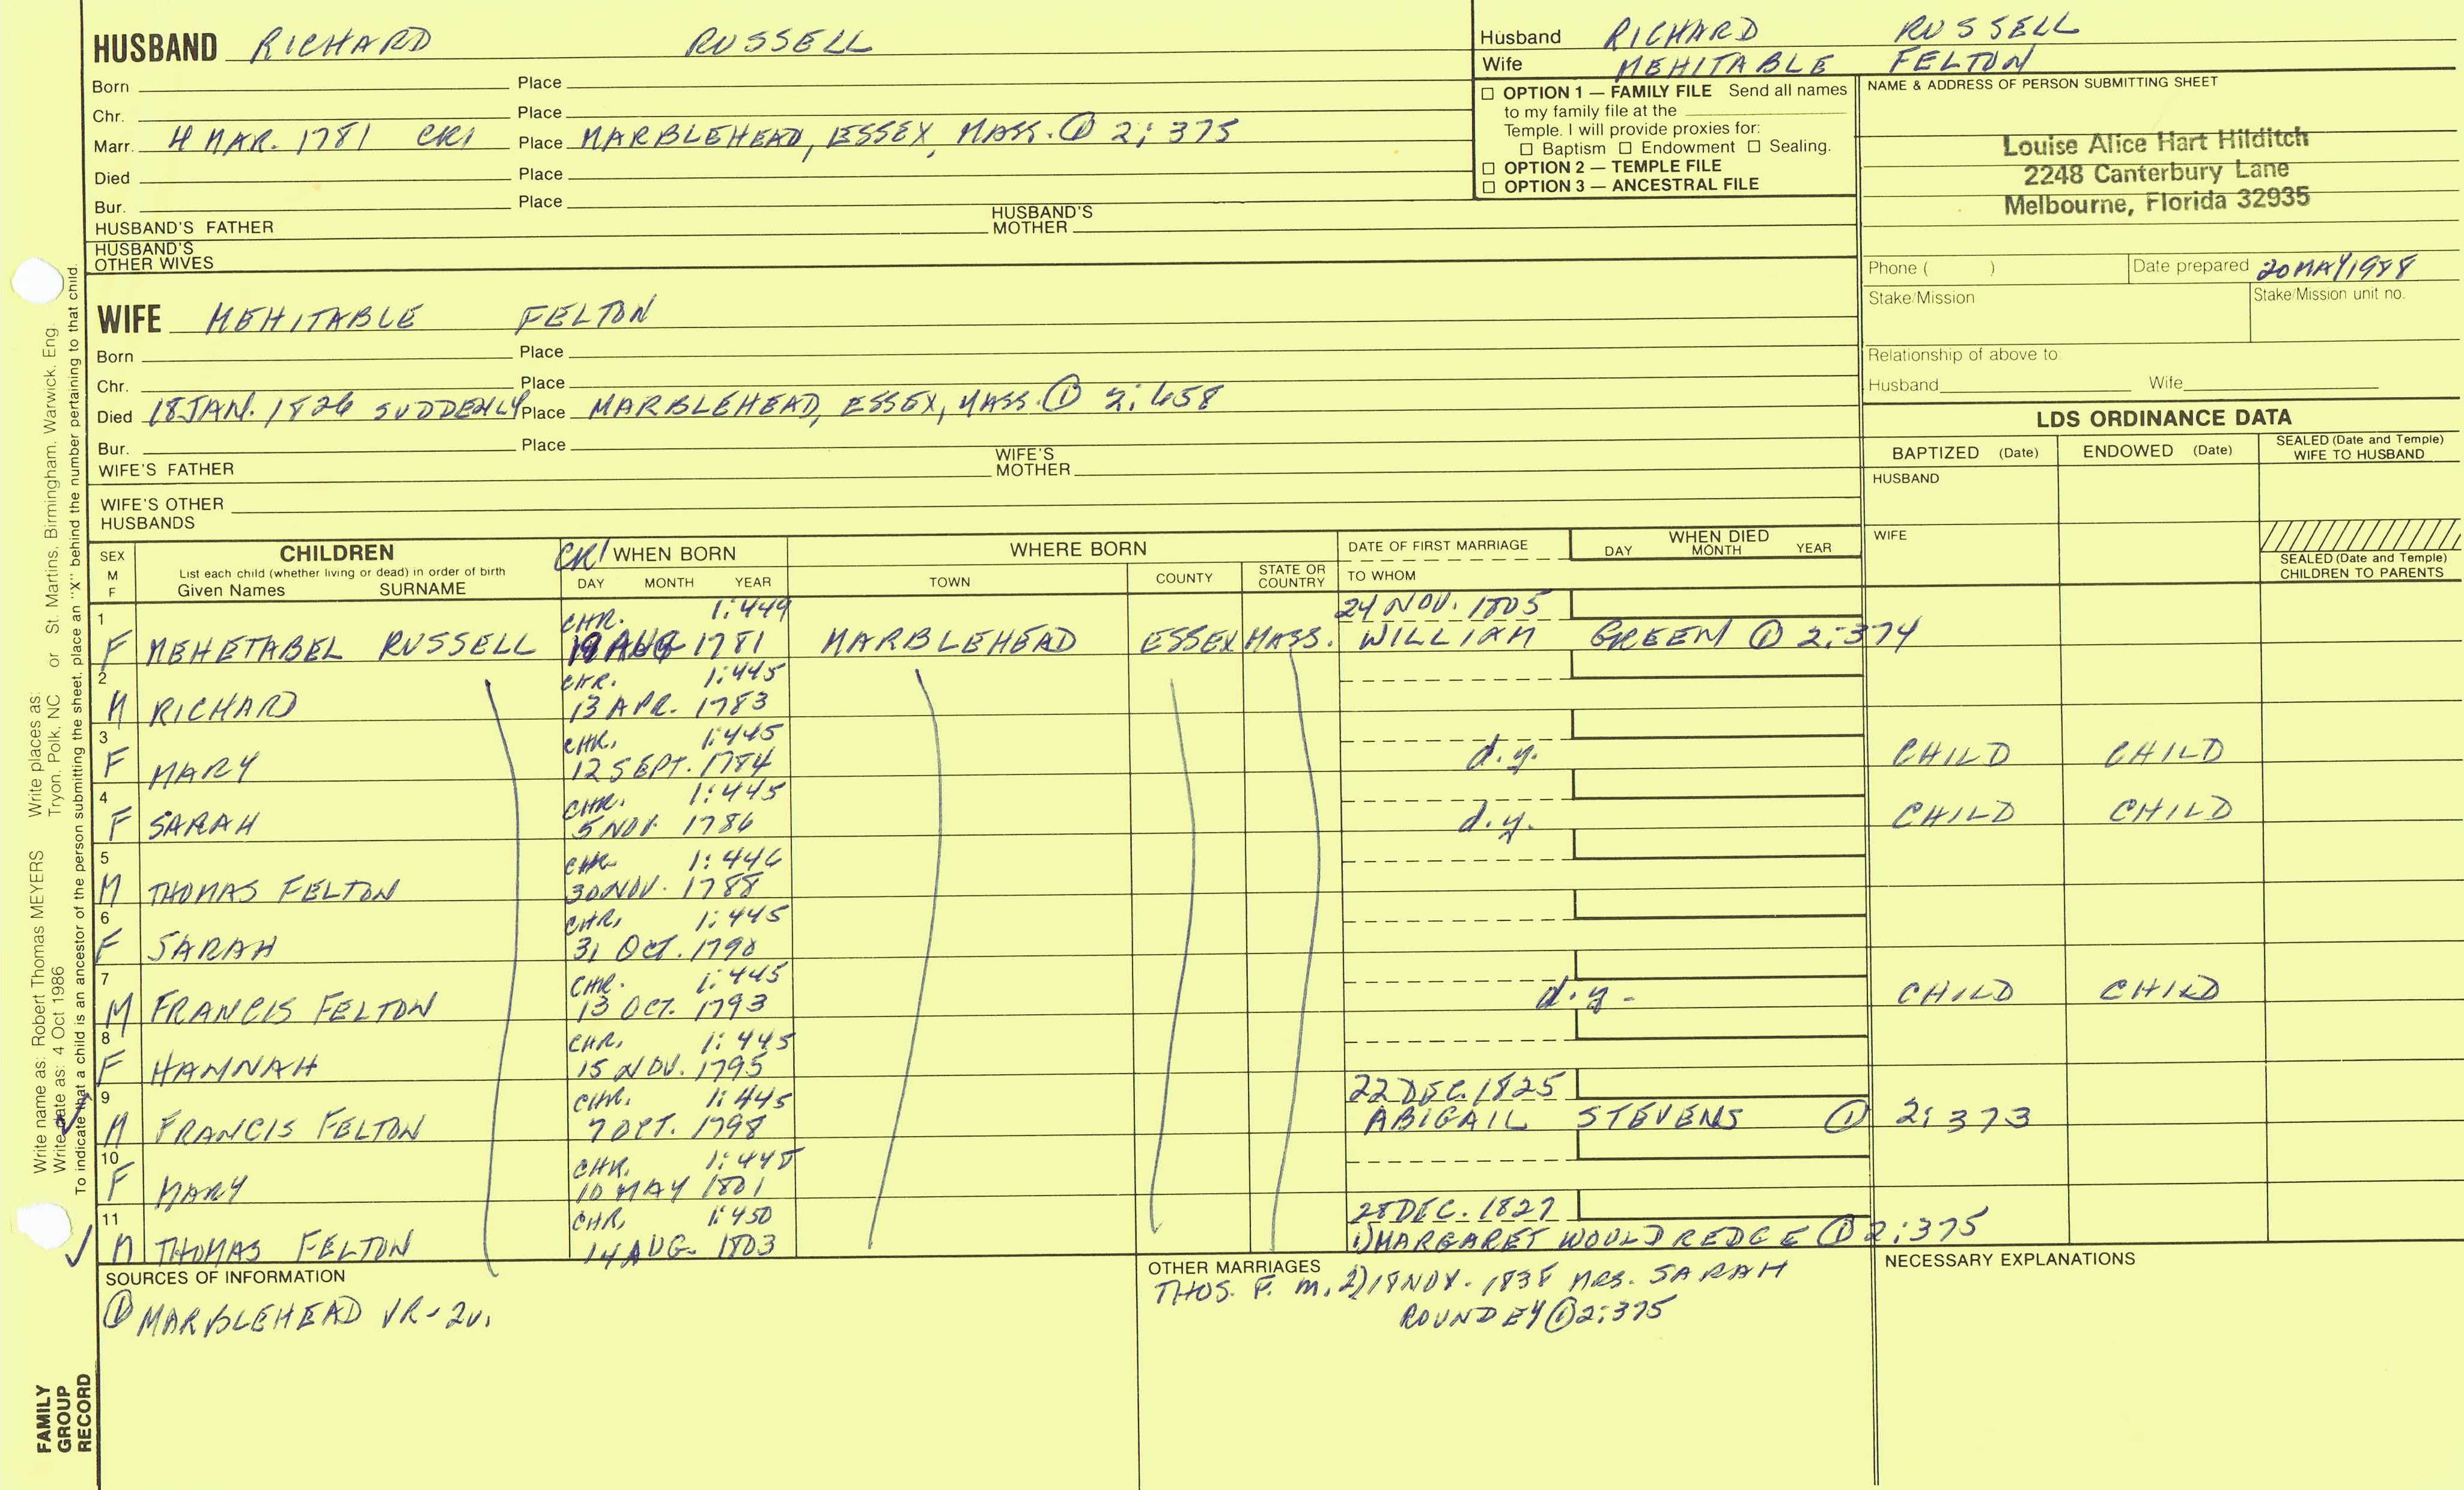 HUSBAND RICHARD RUSSELL
Born Place
Chr. Place
Marr. 4 MAR. 1781 CR1 Place MARBLEHEAD, ESSEX, MASS. ① 2:375
Died Place
Bur. Place
HUSBAND'S FATHER HUSBAND'S MOTHER
HUSBAND'S OTHER WIVES
WIFE MEHITABLE FELTON
Born Place
Chr. Place
Died 18 JAN. 1826 SUDDENLY Place MARBLEHEAD, ESSEX, MASS. ① 2:658
Bur. Place
WIFE'S FATHER WIFE'S MOTHER
WIFE'S OTHER HUSBANDS
Husband RICHARD RUSSELL
Wife MEHITABLE FELTON
☐ OPTION 1 — FAMILY FILE Send all names
to my family file at the
Temple. I will provide proxies for:
☐ Baptism ☐ Endowment ☐ Sealing.
☐ OPTION 2 — TEMPLE FILE
☐ OPTION 3 — ANCESTRAL FILE
NAME & ADDRESS OF PERSON SUBMITTING SHEET
Louise Alice Hart Hilditch
2248 Canterbury Lane
Melbourne, Florida 32935
Phone ( ) Date prepared 20 MAY 1988
Stake/Mission Stake/Mission unit no.
Relationship of above to
Husband Wife
LDS ORDINANCE DATA
BAPTIZED (Date) ENDOWED (Date) SEALED (Date and Temple) WIFE TO HUSBAND
HUSBAND
WIFE
SEALED (Date and Temple) CHILDREN TO PARENTS
SEX M F CHILDREN
List each child (whether living or dead) in order of birth
Given Names SURNAME
CR1 WHEN BORN
DAY MONTH YEAR
WHERE BORN
TOWN COUNTY STATE OR COUNTRY
DATE OF FIRST MARRIAGE
TO WHOM
WHEN DIED
DAY MONTH YEAR
1 CHR. 1:449 24 NOV. 1805
F MEHETABEL RUSSELL 19 AUG 1781 MARBLEHEAD ESSEX MASS. WILLIAM GREEN ① 2:374
2 CHR. 1:445
M RICHARD 13 APR. 1783
3 CHR. 1:445
F MARY 12 SEPT. 1784 d.y. CHILD CHILD
4 CHR. 1:445
F SARAH 5 NOV. 1786 d.y. CHILD CHILD
5 CHR. 1:446
M THOMAS FELTON 30 NOV. 1788
6 CHR. 1:445
F SARAH 31 OCT. 1790
7 CHR. 1:445
M FRANCIS FELTON 13 OCT. 1793 d.y. CHILD CHILD
8 CHR. 1:445
F HANNAH 15 NOV. 1795
9 CHR. 1:445 22 DEC. 1825
M FRANCIS FELTON 7 OCT. 1798 ABIGAIL STEVENS ① 2:373
10 CHR.
F MARY 10 MAY 1801
11 CHR. 1:450 28 DEC. 1827
M THOMAS FELTON 14 AUG. 1803 1) MARGARET WOULDREDGE ① 2:375
SOURCES OF INFORMATION
① MARBLEHEAD VR-2v.
OTHER MARRIAGES
THOS. F. m. 2) 18 NOV. 1838 MRS. SARAH
ROUNDEY ① 2:375
NECESSARY EXPLANATIONS
Write name as: Robert Thomas MEYERS Write places as: Tryon, Polk, NC or St. Martins, Birmingham, Warwick, Eng.
Write date as: 4 Oct 1986
To indicate that a child is an ancestor of the person submitting the sheet, place an "X" behind the number pertaining to that child.
FAMILY
GROUP
RECORD